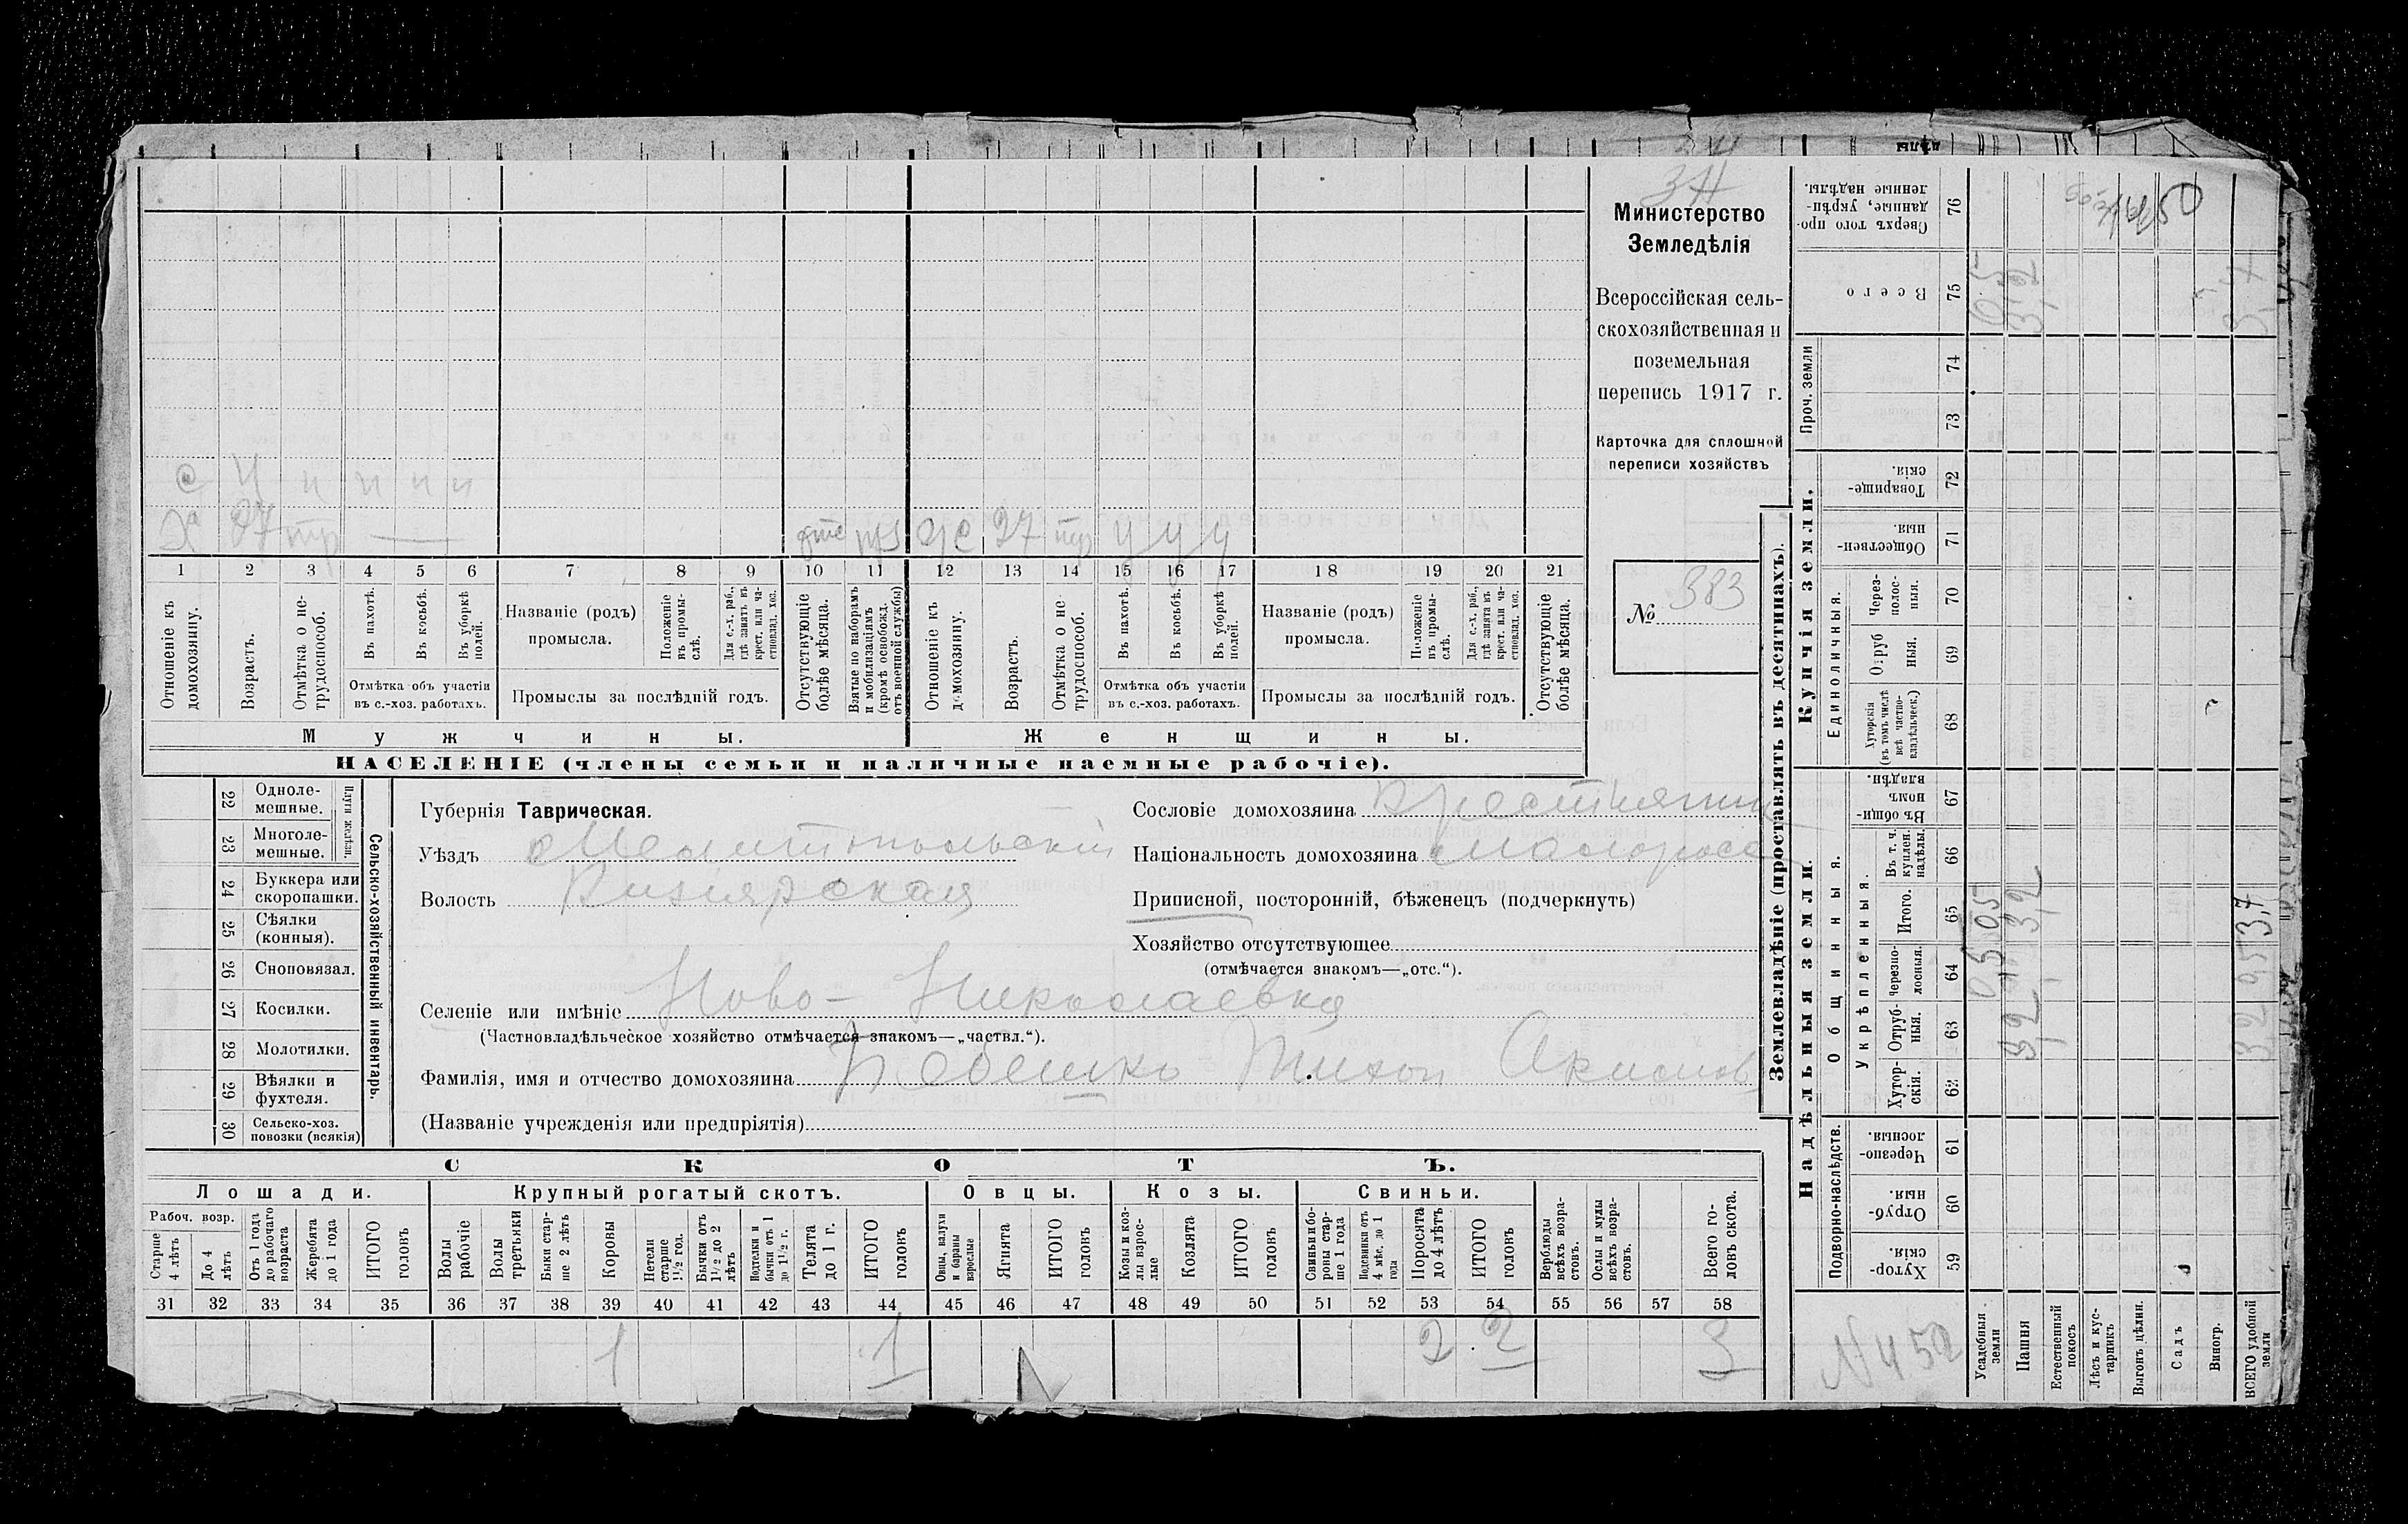 Министерство
Земледѣлія
Всероссійская сель-
скохозяйственная и
поземельная
перепись 1917 г.
Карточка для сплошной
переписи хозяйствъ
№ 383
с ч ч ч ч ч
Ха 27 тр — отс
же 27 тр ч ч ч
1 2 3 4 5 6 7 8 9 10 11 12 13 14 15 16 17 18 19 20 21
Отношеніе къ домохозяину.
Возрастъ.
Отмѣтка о не-трудоспособ.
Въ пахотѣ.
Въ косьбѣ.
Въ уборкѣ полей.
Отмѣтка объ участіи
въ с.-хоз. работахъ.
Названіе (родъ)
промысла.
Положеніе въ промы-слѣ.
Для с.-х. раб., гдѣ занятъ въ крест. или ча-стновлад. хоз.
Промыслы за послѣдній годъ.
Отсутствующіе болѣе мѣсяца.
Взятые по наборамъ и мобилизаціямъ (кромѣ освобожд. отъ военной службы)
Отношеніе къ домохозяину.
Возрастъ.
Отмѣтка о не трудоспособ.
Въ пахотѣ.
Въ косьбѣ.
Въ уборкѣ полей.
Отмѣтка объ участіи
въ с.-хоз. работахъ.
Названіе (родъ)
промысла.
Положеніе въ промы-слѣ.
Для с.-х. раб., гдѣ занята въ крест. или ча-стновлад. хоз.
Промыслы за послѣдній годъ.
Отсутствующіе болѣе мѣсяца.
Мужчины.
Женщины.
НАСЕЛЕНІЕ (члены семьи и наличные наемные рабочіе).
22 Одноле-мешные.
23 Многоле-мешные.
Плуги желѣзн.
24 Буккера или скоропашки.
25 Сѣялки (конныя).
26 Сноповязал.
27 Косилки.
28 Молотилки.
29 Вѣялки и фухтеля.
30 Сельско-хоз. повозки (всякія)
Сельско-хозяйственный инвентарь.
Губернія Таврическая.
Уѣздъ Мелитопольскій
Волость Кизіярская
Сословіе домохозяина Крестьянин
Національность домохозяина малоросс
Приписной, посторонній, бѣженецъ (подчеркнуть)
Хозяйство отсутствующее
(отмѣчается знакомъ—„отс.“).
Селеніе или имѣніе Ново-Николаевка
(Частновладѣльческое хозяйство отмѣчается знакомъ—„частвл.“).
Фамилія, имя и отчество домохозяина Тихон Акимов
(Названіе учрежденія или предпріятія)
СКОТЪ.
Лошади. Крупный рогатый скотъ. Овцы. Козы. Свиньи.
Рабоч. возр.
Старше 4 лѣтъ
До 4 лѣтъ
Отъ 1 года до рабочаго возраста
Жеребята до 1 года
ИТОГО головъ
Волы рабочіе
Волы третьяки
Быки стар-ше 2 лѣтъ
Коровы
Нетели старше 1½ год.
Бычки отъ 1½ до 2 лѣтъ
Подтелки и бычки отъ 1 до 1½ г.
Телята до 1 г.
ИТОГО головъ
Овцы, валухи и бараны взрослые
Ягнята
ИТОГО головъ
Козы и коз-лы взрос-лые
Козлята
ИТОГО головъ
Свиньи и бо-ровы стар-ше 1 года
Подсвинки отъ 4 мѣс. до 1 года
Поросята до 4 лѣтъ
ИТОГО головъ
Верблюды всѣхъ возра-стовъ.
Ослы и мулы всѣхъ возра-стовъ.
Всего го-ловъ скота.
31 32 33 34 35 36 37 38 39 40 41 42 43 44 45 46 47 48 49 50 51 52 53 54 55 56 57 58
1 1 2 2 3
Землевладѣніе (проставлять въ десятинахъ).
Надѣльныя земли. Купчія земли.
Подворно-наслѣдств.
Общинныя.
Укрѣпленныя.
Единоличныя.
Проч. земли
59 Хутор-скія.
60 Отруб-ныя.
61 Черезпо-лосныя.
62 Хутор-скія.
63 Отруб-ныя.
64 Черезпо-лосныя.
65 Итого.
66 Въ т. ч. куплен. надѣлы.
67 Въ общи-номъ владѣн.
68 Хуторскія (въ томъ числѣ всѣ частно-владѣльческ.)
69 Отруб ныя.
70 Через-полос-ныя.
71 Обществен-ныя.
72 Товарище-скія.
73
74
75 Всего
76 Сверхъ того про-данные, укрѣп-ленные надѣлы.
N 452
Усадебныя земли 0,5 0,5 0,5
Пашня 3,2 3,2 3,2
Естественный покосъ
Лѣсъ и кус-тарникъ
Выгонъ цѣлин.
Садъ
Виногр.
ВСЕГО удобной земли 3,2 0,5 3,7 3,7